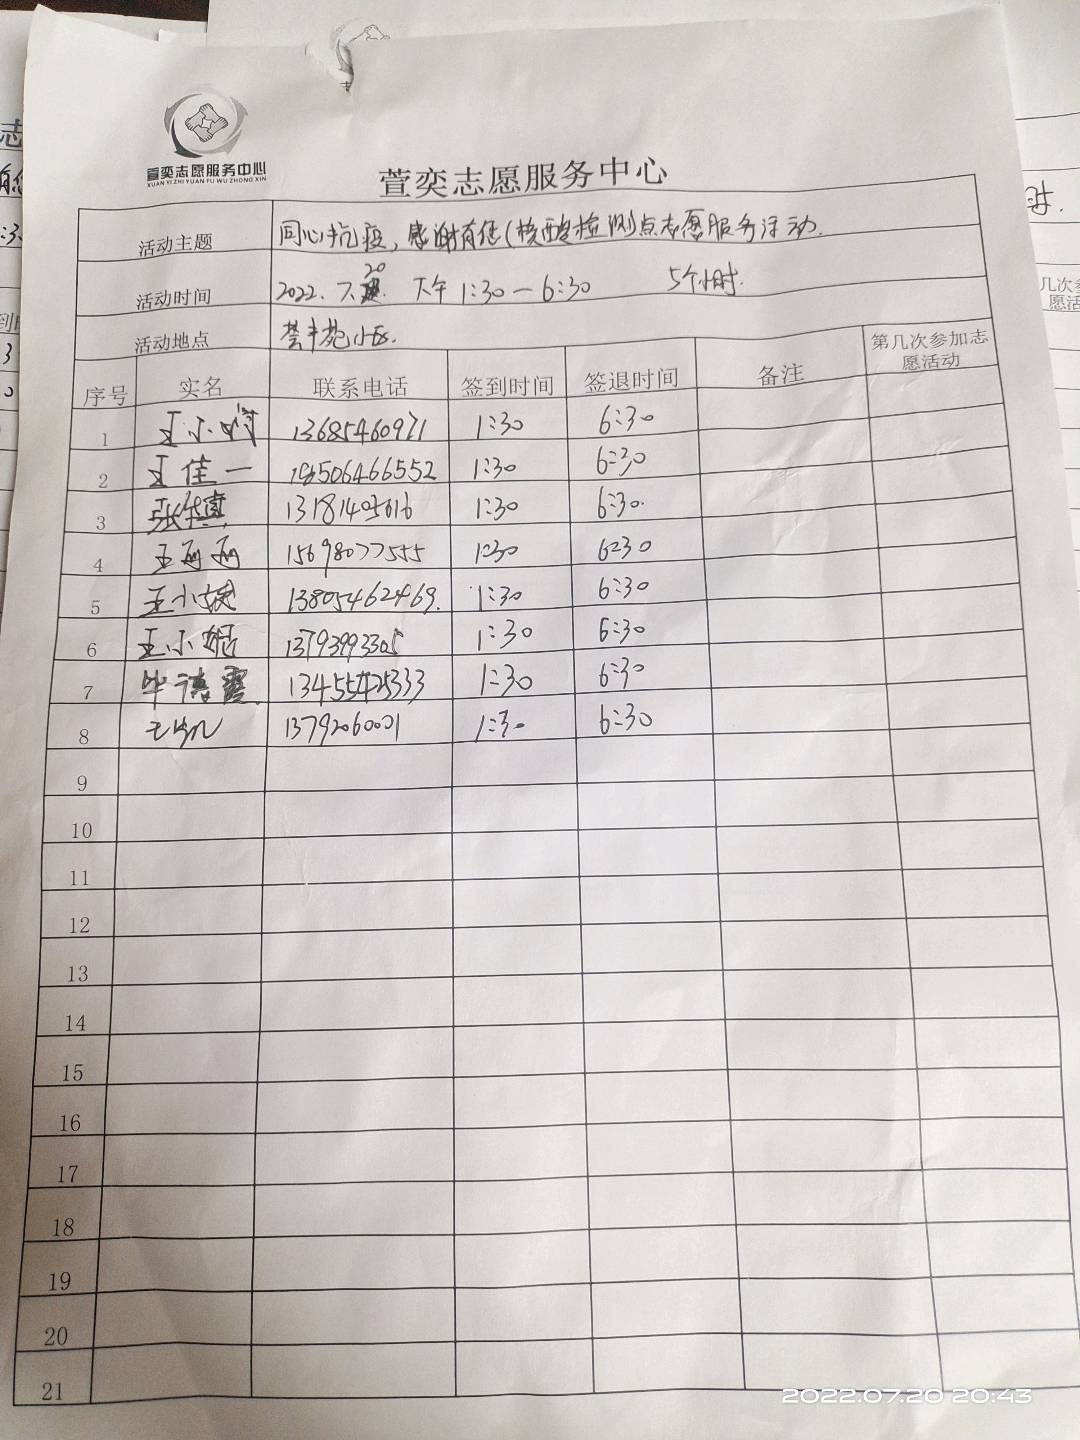 萱奕志愿服务中心
XUAN YI ZHI YUAN FU WU ZHONG XIN
萱奕志愿服务中心
活动主题 同心抗疫，感谢有您（核酸检测点志愿服务活动.
活动时间 2022.7.20 下午 1:30—6:30 5个小时.
活动地点 荟丰苑小区.
序号 实名 联系电话 签到时间 签退时间 备注 第几次参加志愿活动
1 王小 13685460971 1:30 6:30
2 王佳一 506466552 1:30 6:30
3 张 1:30 6:30
4 王丽丽 15698077555 1:30 6:30
5 王小 13805462469. 1:30 6:30
6 王小 13793993305 1:30 6:30
7 毕德霞. 13455425333 1:30 6:30
8 王 13792060001 1:30 6:30
9
10
11
12
13
14
15
16
17
18
19
20
21
2022.07.20 20:43